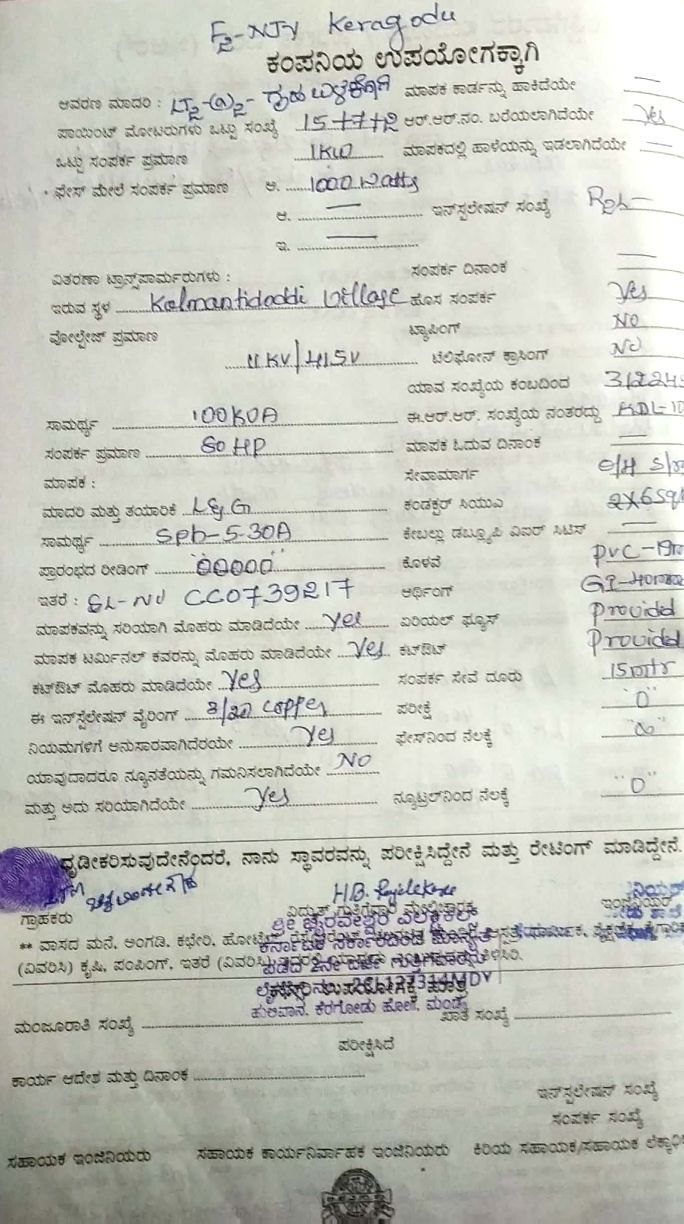 F2-NJY Keragodu
ಕಂಪನಿಯ ಉಪಯೋಗಕ್ಕಾಗಿ
ಆವರಣ ಮಾದರಿ : LT2-(a)2- ಗೃಹ ಬಳಕೆಗಾಗಿ ಮಾಪಕ ಕಾರ್ಡನ್ನು ಹಾಕಿದೆಯೇ —
ಪಾಯಿಂಟ್ ಮೋಟರುಗಳು ಒಟ್ಟು ಸಂಖ್ಯೆ 15+7+2 ಆರ್.ಆರ್.ನಂ. ಬರೆಯಲಾಗಿದೆಯೇ Yes
ಒಟ್ಟು ಸಂಪರ್ಕ ಪ್ರಮಾಣ 1KW ಮಾಪಕದಲ್ಲಿ ಹಾಳೆಯನ್ನು ಇಡಲಾಗಿದೆಯೇ —
ಫೇಸ್ ಮೇಲೆ ಸಂಪರ್ಕ ಪ್ರಮಾಣ ಅ. 1000 Watts
ಆ. — ಇನ್‌ಸ್ಟಲೇಷನ್ ಸಂಖ್ಯೆ
ಇ. —
ವಿತರಣಾ ಟ್ರಾನ್ಸ್‌ಪಾರ್ಮರುಗಳು : ಸಂಪರ್ಕ ದಿನಾಂಕ —
ಇರುವ ಸ್ಥಳ Kalmantidoddi Village ಹೊಸ ಸಂಪರ್ಕ Yes
ವೋಲ್ಟೇಜ್ ಪ್ರಮಾಣ ಟ್ಯಾಪಿಂಗ್ NO
11KV/415V ಟೆಲಿಫೋನ್ ಕ್ರಾಸಿಂಗ್ NO
ಯಾವ ಸಂಖ್ಯೆಯ ಕಂಬದಿಂದ
ಸಾಮರ್ಥ್ಯ 100KVA ಈ.ಆರ್.ಆರ್. ಸಂಖ್ಯೆಯ ನಂತರದ್ದು KDL-10
ಸಂಪರ್ಕ ಪ್ರಮಾಣ 80 HP ಮಾಪಕ ಓದುವ ದಿನಾಂಕ —
ಮಾಪಕ : ಸೇವಾಮಾರ್ಗ O/H
ಮಾದರಿ ಮತ್ತು ತಯಾರಿಕೆ L&G ಕಂಡಕ್ಟರ್ ಸಿಯುಎ 2X6Sq
ಸಾಮರ್ಥ್ಯ Sph-5-30A ಕೇಬಲ್ಲು ಡಬ್ಲ್ಯೂಪಿ ವಿಐಆರ್ ಸಿಟಿಸ್ —
ಪ್ರಾರಂಭದ ರೀಡಿಂಗ್ "00000" ಕೊಳವೆ PVC-19m
ಇತರೆ : SL-NO CC0739217 ಅರ್ಥಿಂಗ್
ಮಾಪಕವನ್ನು ಸರಿಯಾಗಿ ಮೊಹರು ಮಾಡಿದೆಯೇ Yes ಏರಿಯಲ್ ಫ್ಯೂಸ್ Provided
ಮಾಪಕ ಟರ್ಮಿನಲ್ ಕವರನ್ನು ಮೊಹರು ಮಾಡಿದೆಯೇ Yes ಕಟ್‌ಔಟ್ Provided
ಕಟ್‌ಔಟ್ ಮೊಹರು ಮಾಡಿದೆಯೇ Yes ಸಂಪರ್ಕ ಸೇವೆ ದೂರು 15mtr
ಈ ಇನ್‌ಸ್ಟೆಲೇಷನ್ ವೈರಿಂಗ್ 3/20 Copper ಪರೀಕ್ಷೆ "0"
ನಿಯಮಗಳಿಗೆ ಅನುಸಾರವಾಗಿದೆರಯೇ Yes ಫೇಸ್‌ನಿಂದ ನೆಲಕ್ಕೆ "∞"
ಯಾವುದಾದರೂ ನ್ಯೂನತೆಯನ್ನು ಗಮನಿಸಲಾಗಿದೆಯೇ NO
ಮತ್ತು ಅದು ಸರಿಯಾಗಿದೆಯೇ Yes ನ್ಯೂಟ್ರಲ್‌ನಿಂದ ನೆಲಕ್ಕೆ "0"
ಧೃಡೀಕರಿಸುವುದೇನೆಂದರೆ, ನಾನು ಸ್ಥಾವರವನ್ನು ಪರೀಕ್ಷಿಸಿದ್ದೇನೆ ಮತ್ತು ರೇಟಿಂಗ್ ಮಾಡಿದ್ದೇನೆ.
LTM
ಗ್ರಾಹಕರು ವಿದ್ಯುತ್ ಗುತ್ತಿಗೆದಾರ ಮೇಲ್ವಿಚಾರಕ ಇಂಜಿನಿಯರ್
ಶ್ರೀ ಭೈರವೇಶ್ವರ ಎಲೆಕ್ಟ್ರಿಕಲ್
** ವಾಸದ ಮನೆ, ಅಂಗಡಿ, ಕಛೇರಿ,
ಕರ್ನಾಟಕ ಸರ್ಕಾರದಿಂದ ಮಾನ್ಯತೆ
(ವಿವರಿಸಿ) ಕೃಷಿ, ಪಂಪಿಂಗ್, ಇತರೆ (ವಿವರಿಸಿ)
ಪಡೆದ 2ನೇ ದರ್ಜೆ ಗುತ್ತಿಗೆದಾರರು
ಕಛೇರಿ ಉಪಯೋಗಕ್ಕೆ ಮಾತ್ರ
ಹುಲಿವಾನ, ಕೆರಗೋಡು ಹೋಬಳಿ, ಮಂಡ್ಯ
ಮಂಜೂರಾತಿ ಸಂಖ್ಯೆ ಖಾತೆ ಸಂಖ್ಯೆ
ಪರೀಕ್ಷಿಸಿದೆ
ಕಾರ್ಯ ಆದೇಶ ಮತ್ತು ದಿನಾಂಕ
ಇನ್‌ಸ್ಟಲೇಷನ್ ಸಂಖ್ಯೆ
ಸಂಪರ್ಕ ಸಂಖ್ಯೆ
ಸಹಾಯಕ ಇಂಜಿನಿಯರು ಸಹಾಯಕ ಕಾರ್ಯನಿರ್ವಾಹಕ ಇಂಜಿನಿಯರು ಕಿರಿಯ ಸಹಾಯಕ/ಸಹಾಯಕ